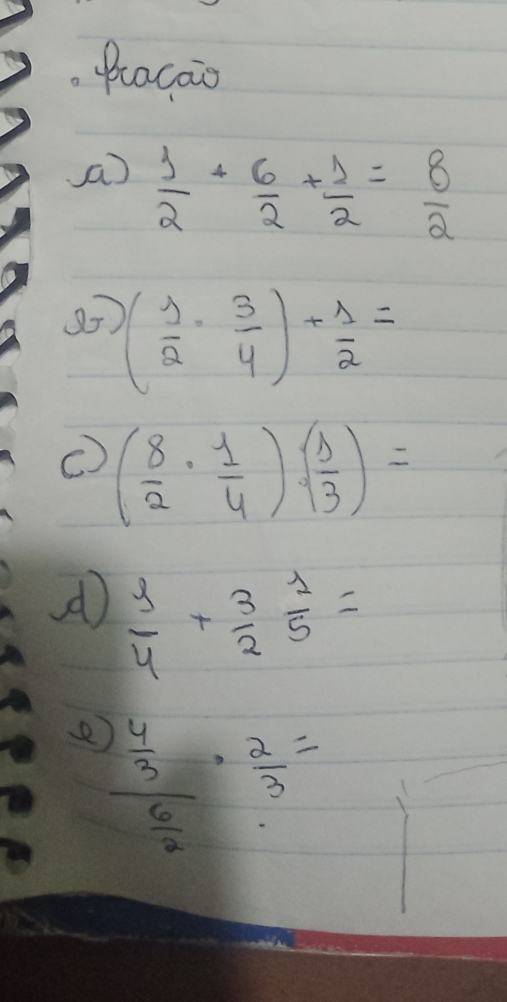 . fração
a) 1/2 + 6/2 + 1/2 = 8/2
b) (1/2 . 3/4) + 1/2 =
c) (8/2 . 1/4) : (1/3) =
d) 1/4 + 3/2 1/5 =
e) (4/3)/(6/2) . 2/3 =